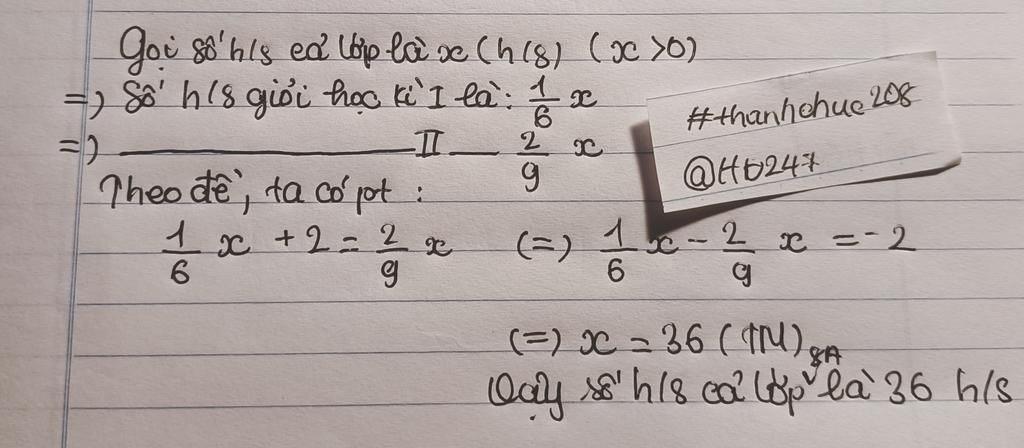 Gọi số h/s cả lớp là x (h/s) (x >0)
=) Số h/s giỏi học kì I là: 1/6 x
=) ———— II — 2/9 x
#thanhchuc208
@Hb247
Theo đề, ta có pt:
1/6 x + 2 = 2/9 x (=) 1/6 x - 2/9 x = -2
(=) x = 36 (TM)
Vậy số h/s cả lớp 8A là 36 h/s